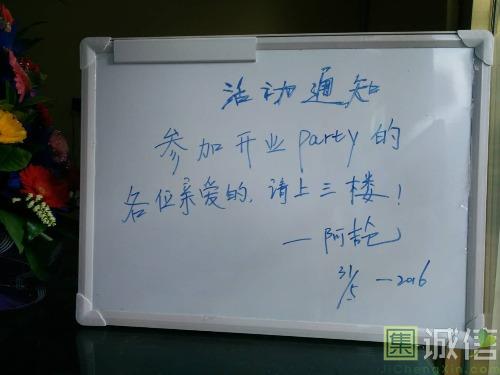 活动通知
参加开业party的
各位亲爱的,请上三楼!
—阿
31/5 —2016
集 诚信
JiChengXin.com